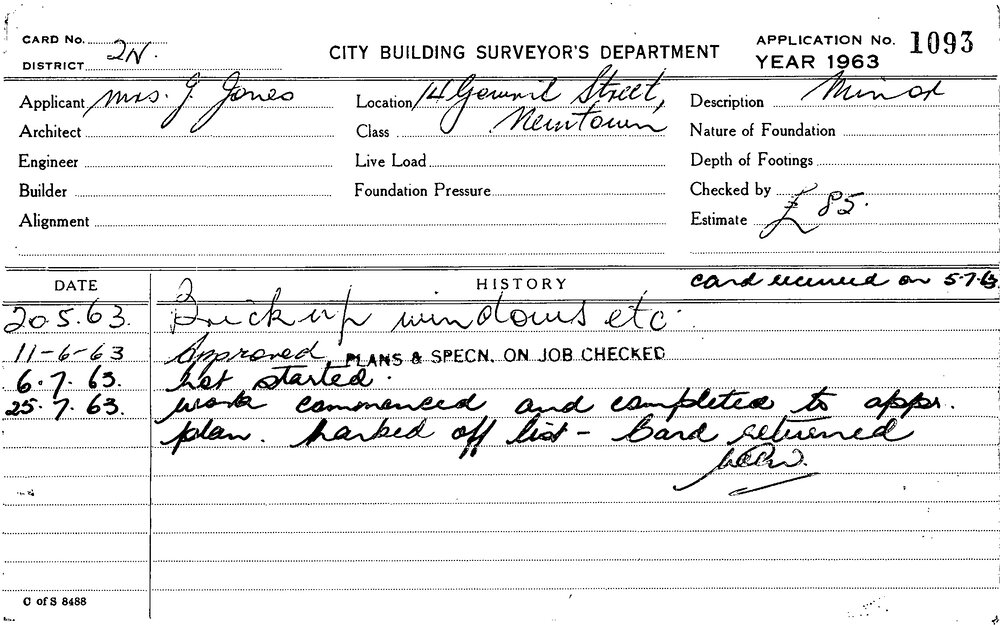 CARD No.
DISTRICT 2N.
CITY BUILDING SURVEYOR'S DEPARTMENT
APPLICATION No. 1093
YEAR 1963
Applicant Mrs. J. Jones
Location 14 Street, Newtown
Description Minor
Architect
Class
Nature of Foundation
Engineer
Live Load
Depth of Footings
Builder
Foundation Pressure
Checked by
Alignment
Estimate £85.
DATE
HISTORY
card received on 5.7.63
20.5.63. Brick up windows etc.
11-6-63 Approved PLANS & SPECN. ON JOB CHECKED
6.7.63. Not started.
25.7.63. work commenced and completed to appr.
plan. Marked off list - Card returned
C of S 8488